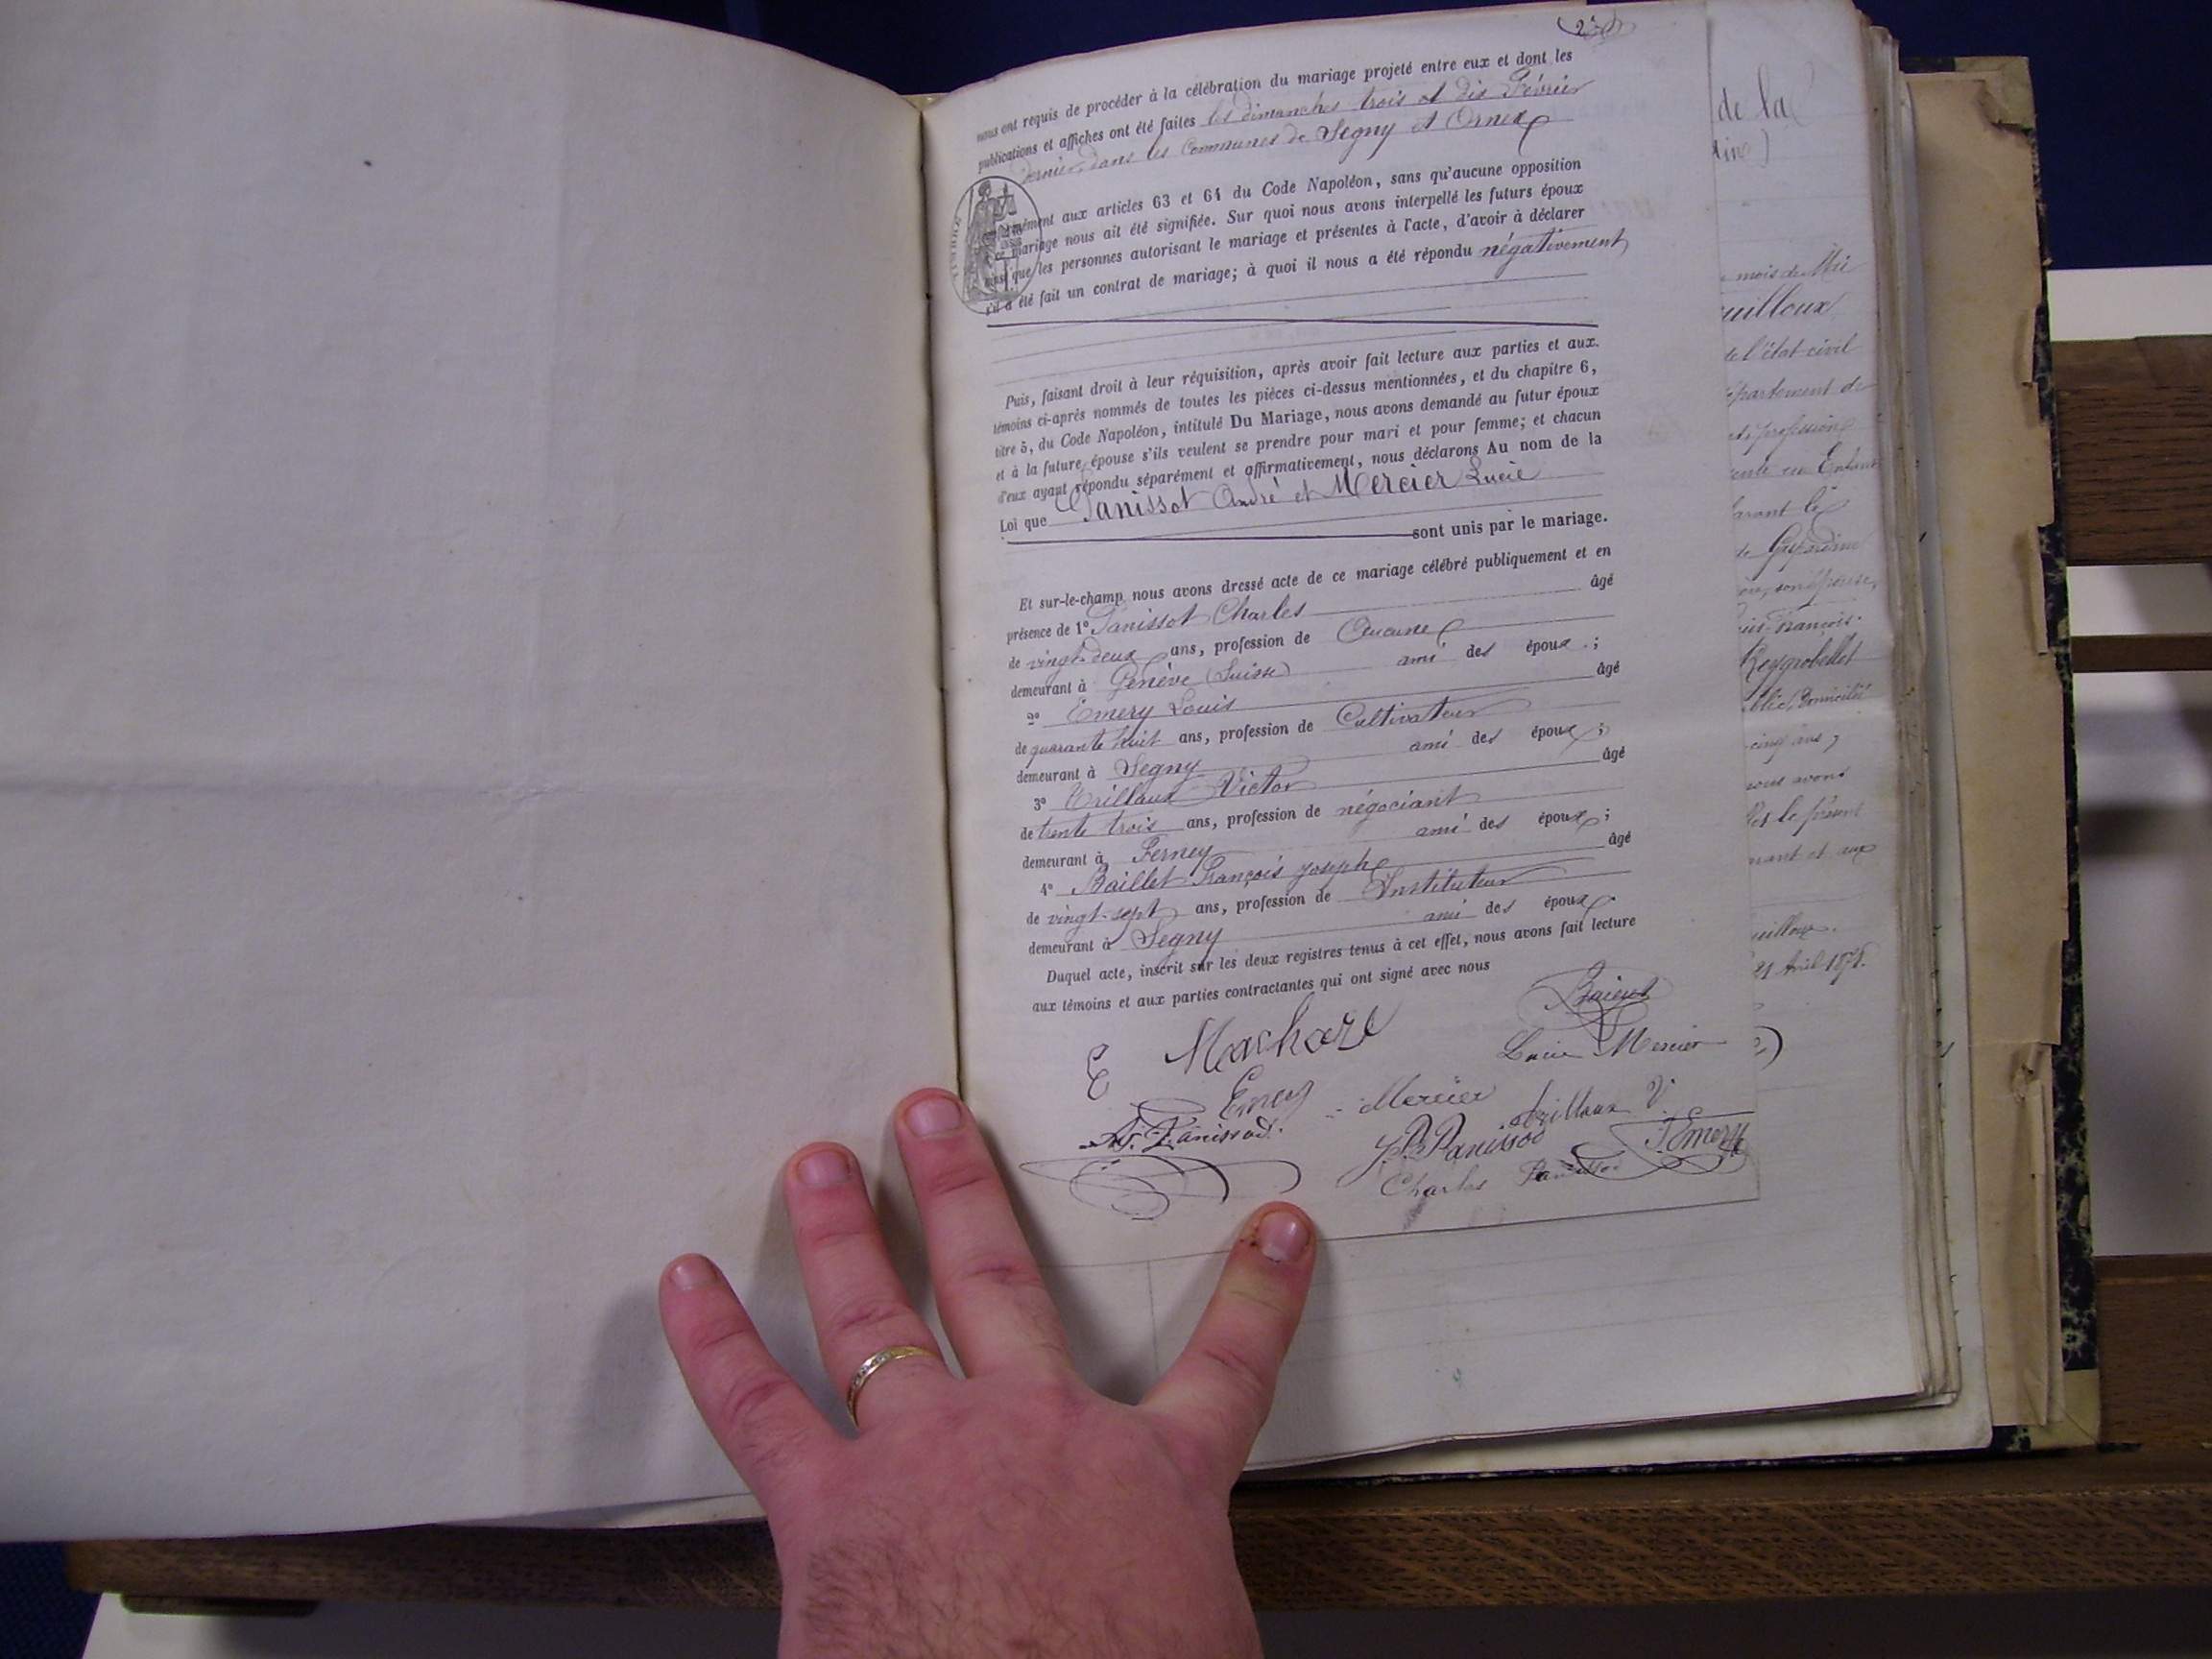 nous ont requis de procéder à la célébration du mariage projeté entre eux et dont les
publications et affiches ont été faites les dimanches trois et dix Février
dernier, dans les Communes de Segny et Ornex
aux articles 63 et 64 du Code Napoléon, sans qu'aucune opposition
mariage nous ait été signifiée. Sur quoi nous avons interpellé les futurs époux
que les personnes autorisant le mariage et présentes à l'acte, d'avoir à déclarer
s'il a été fait un contrat de mariage; à quoi il nous a été répondu négativement
Puis, faisant droit à leur réquisition, après avoir fait lecture aux parties et aux
témoins ci-après nommés de toutes les pièces ci-dessus mentionnées, et du chapitre 6,
titre 5, du Code Napoléon, intitulé Du Mariage, nous avons demandé au futur époux
et à la future épouse s'ils veulent se prendre pour mari et pour femme; et chacun
d'eux ayant répondu séparément et affirmativement, nous déclarons Au nom de la
Loi que Panissot André et Mercier Lucie
sont unis par le mariage.
Et sur-le-champ nous avons dressé acte de ce mariage célébré publiquement et en
présence de 1° Panissot Charles âgé
de vingt-deux ans, profession de Aucune
demeurant à Genève (Suisse) ami des époux;
2° Emery Louis âgé
de quarante huit ans, profession de Cultivateur
demeurant à Segny ami des époux;
3° Trilloux Victor âgé
de trente trois ans, profession de négociant
demeurant à Ferney ami des époux;
4° Baillet François Joseph âgé
de vingt-sept ans, profession de Instituteur
demeurant à Segny ami des époux.
Duquel acte, inscrit sur les deux registres tenus à cet effet, nous avons fait lecture
aux témoins et aux parties contractantes qui ont signé avec nous
Lucie Mercier
Emery Mercier
Trilloux V.
J. B. Panissod
Charles
de la
mois de Mai
uilloux
de l'état civil
épartement de
profession
avant le
son épouse,
Reygrobellet
cinq ans;
nous avons
le présent
nant et aux
21 Avril 1878.